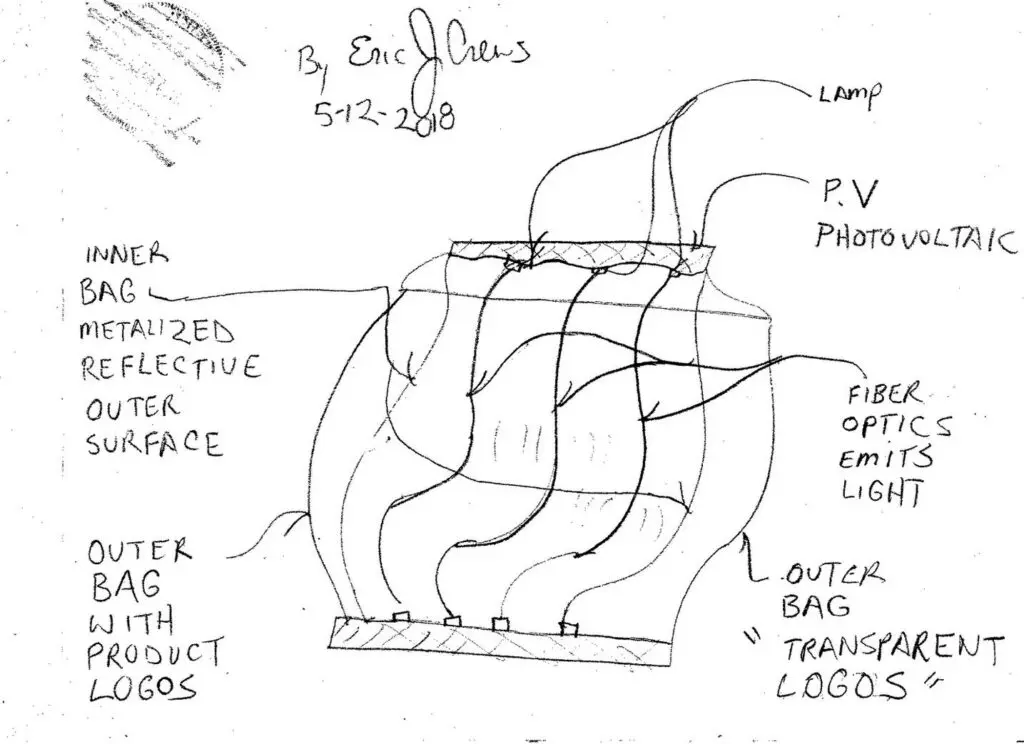 By Eric J Crews
5-12-2018
LAMP
P.V
PHOTOVOLTAIC
INNER
BAG
METALIZED
REFLECTIVE
OUTER
SURFACE
FIBER
OPTICS
EMITS
LIGHT
OUTER
BAG
WITH
PRODUCT
LOGOS
OUTER
BAG
"TRANSPARENT
LOGOS"